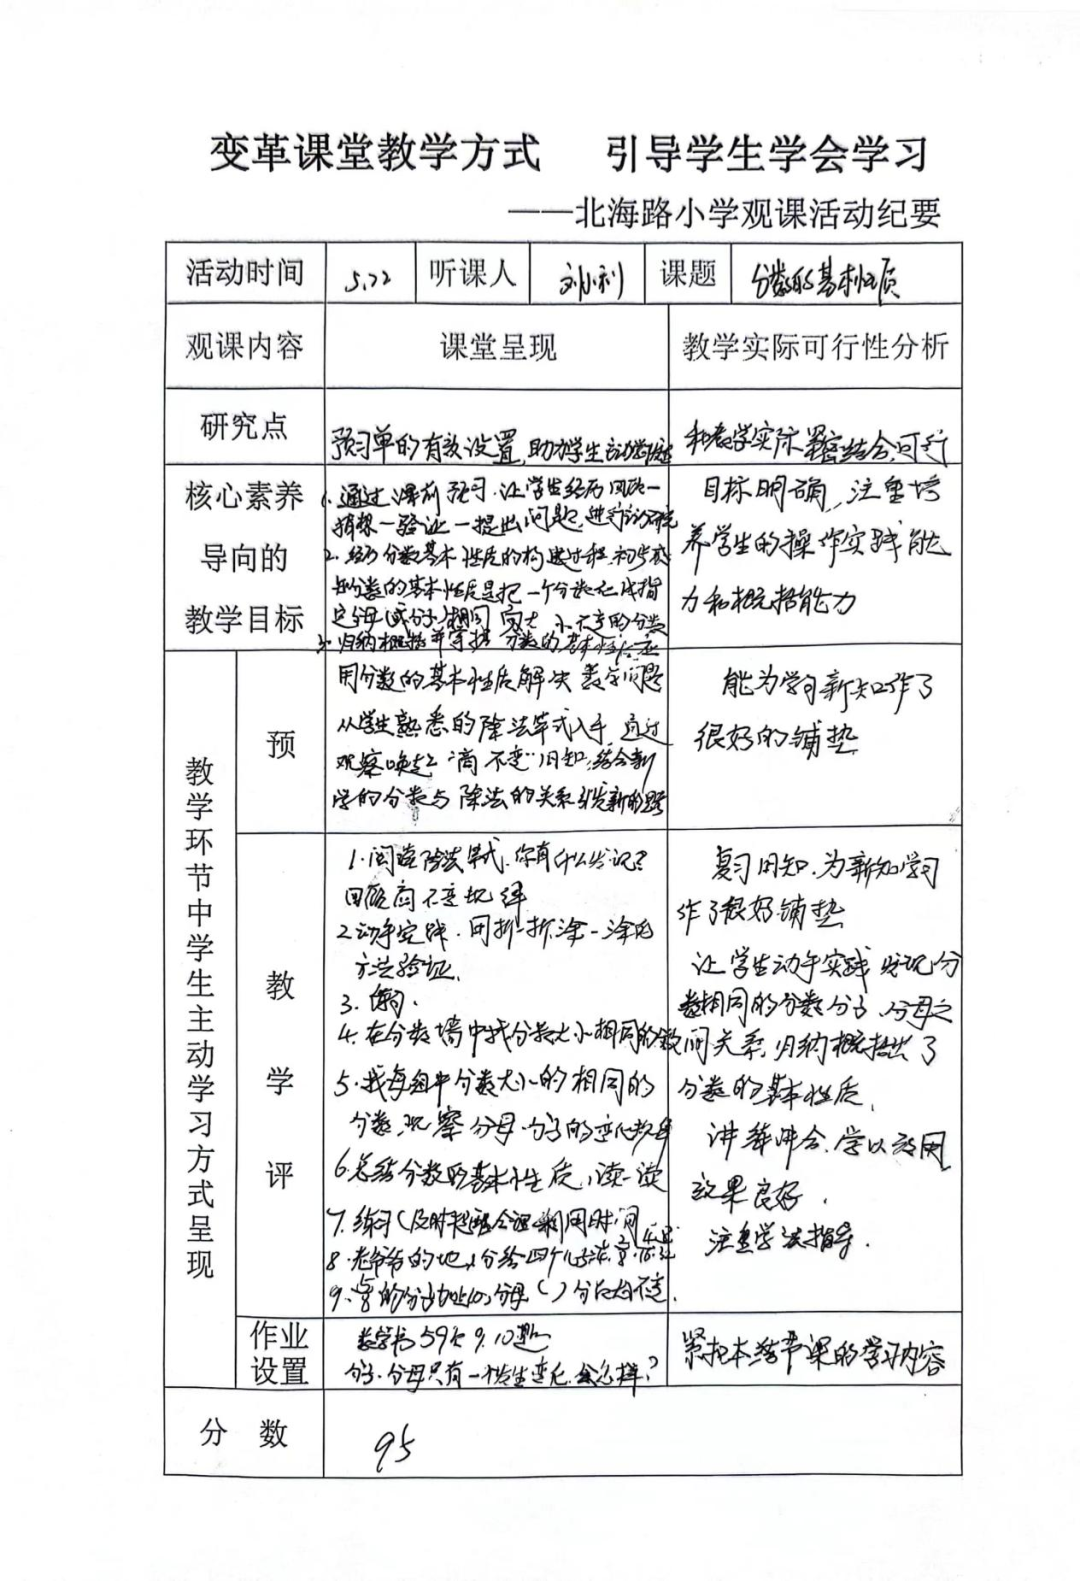 变革课堂教学方式 引导学生学会学习
——北海路小学观课活动纪要
活动时间 5.22 听课人 刘小利 课题 分数的基本性质
观课内容 课堂呈现 教学实际可行性分析
研究点 预习单的有效设置,助力学生主动 和教学实际紧密结合,可行
核心素养
导向的
教学目标
1.通过课前预习,让学生经历
猜想一验证一提出问题,进行
2.经历分数基本性质的构建过程,初步感
知分数的基本性质是把一个分数化成指
定分母(或分子)相同 大小不变的分数
3.归纳概括并掌握分数的基本性质
用分数的基本性质解决数学问题
目标明确,注重培
养学生的操作实践能
力和概括能力
教学环节中学生主动学习方式呈现
预
从学生熟悉的除法算式入手,通过
观察唤起“商不变”旧知,结合新
学的分数与除法的关系引发新的
能为学习新知作了
很好的铺垫
教
学
评
1.阅读除法算式,你有什么发现?
回顾商不变规律
2动手实践.用折一折涂一涂
方法验证.
3.
4.在分数墙中找分数大小相同的
5.找每组中分数大小的相同的
分数,观察分母.分子的变化
6.总结分数的基本性质,读一读
7.练习(及时
8.老爷爷的地,分给四个儿子
9. 的分子 分母( )分数大小不变.
复习旧知.为新知学习
作了很好铺垫
让学生动手实践 发现分
数相同的分数分子、分母之
间关系,归纳概括出了
分数的基本性质.
讲练结合.学以致用
效果良好.
注重学法指导.
作业
设置
数学书59页9.10题
分子.分母只有一个发生变化,会怎样?
紧扣本节课的学习内容
分 数 95